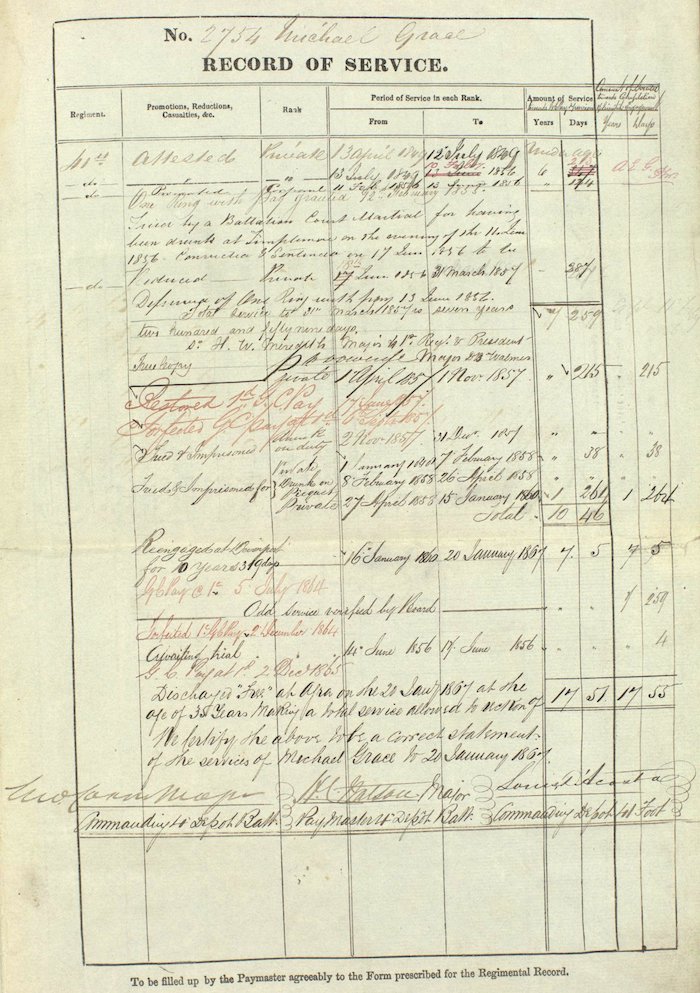 No. 2754 Michael Grace
RECORD OF SERVICE.
Regiment. Promotions, Reductions, Casualties, &c. Rank Period of Service in each Rank. From To Amount of Service Years Days Years Days
41st Attested Private 13 April 1849 12 July 1849 Under age
do 13 July 1849 1856 6
do Promoted Corporal 1856 1856 " 124
One Ring with pay granted February 1855.
Tried by a Battalion Court Martial for having
been drunk at Templemore on the evening of the
1856. Convicted & Sentenced on 17 June 1856 to be
do Reduced Private 18th June 1856 31 March 1857 " 287
Depriving of One Ring with from 13 June 1856.
Total Service to 31st March 1857 is seven years 7 259
two hundred and fifty nine days.
H. W. Meredith Major 41st Regt. & President
Major
Private 1 April 1857 1 Nov 1857. " 215 " 215
Restored 1st G C Pay 17 June 1857
Forfeited G C Pay at 1d 1857
Tried & Imprisoned Drunk on duty 2 Nov 1857 31 Decr 1857 " " "
Private 1 January 1858 7 February 1858 " 38 " 38
Tried & Imprisoned for Drunk on Picquet 8 February 1858 26 April 1858 " " "
Private 27 April 1858 15 January 1860 1 264 1 264
Total 10 46
Reengaged at Devonport
for 10 Years 319 days 16 January 1860 20 January 1867 7 5 7 5
G C Pay @ 1d 5 July 1864
Odd service verified by Board " " 7 259
Forfeited 1d G C Pay 2 December 1864
Awaiting trial 14 June 1856 17 June 1856 " " " 4
G. C. Pay at 1d 2 Decr 1865
Discharged "Free" at on the 20 Jany 1867 at the 17 51 17 55
age of 35 Years Making a total service allowed to reckon of
We certify the above to be a correct statement
of the services of Michael Grace to 20 January 1867.
H C Watson Major
Commanding Depot Batt. Pay Master Depot Batt. Commanding Depot 41 Foot
To be filled up by the Paymaster agreeably to the Form prescribed for the Regimental Record.